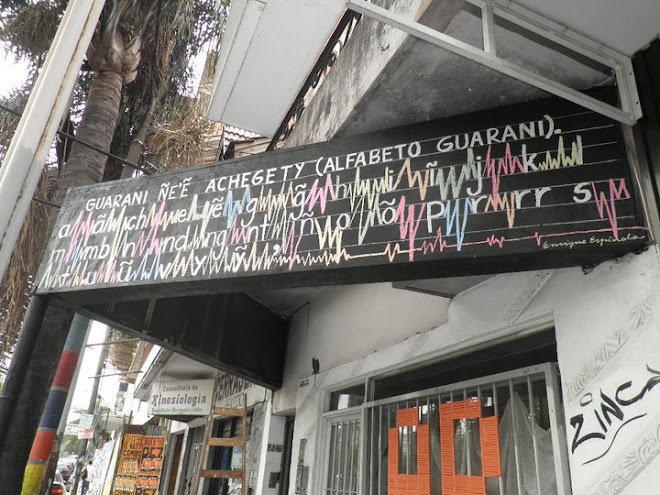 GUARANI ÑE'Ẽ ACHEGETY (ALFABETO GUARANI).
a ã ch e ẽ g g̃ h i ĩ j k
m mb n nd ng nt ñ o õ p r rr s
t u ũ v y ỹ '
Enrique Espínola
Consultorio de
Kinesiología
ZINC